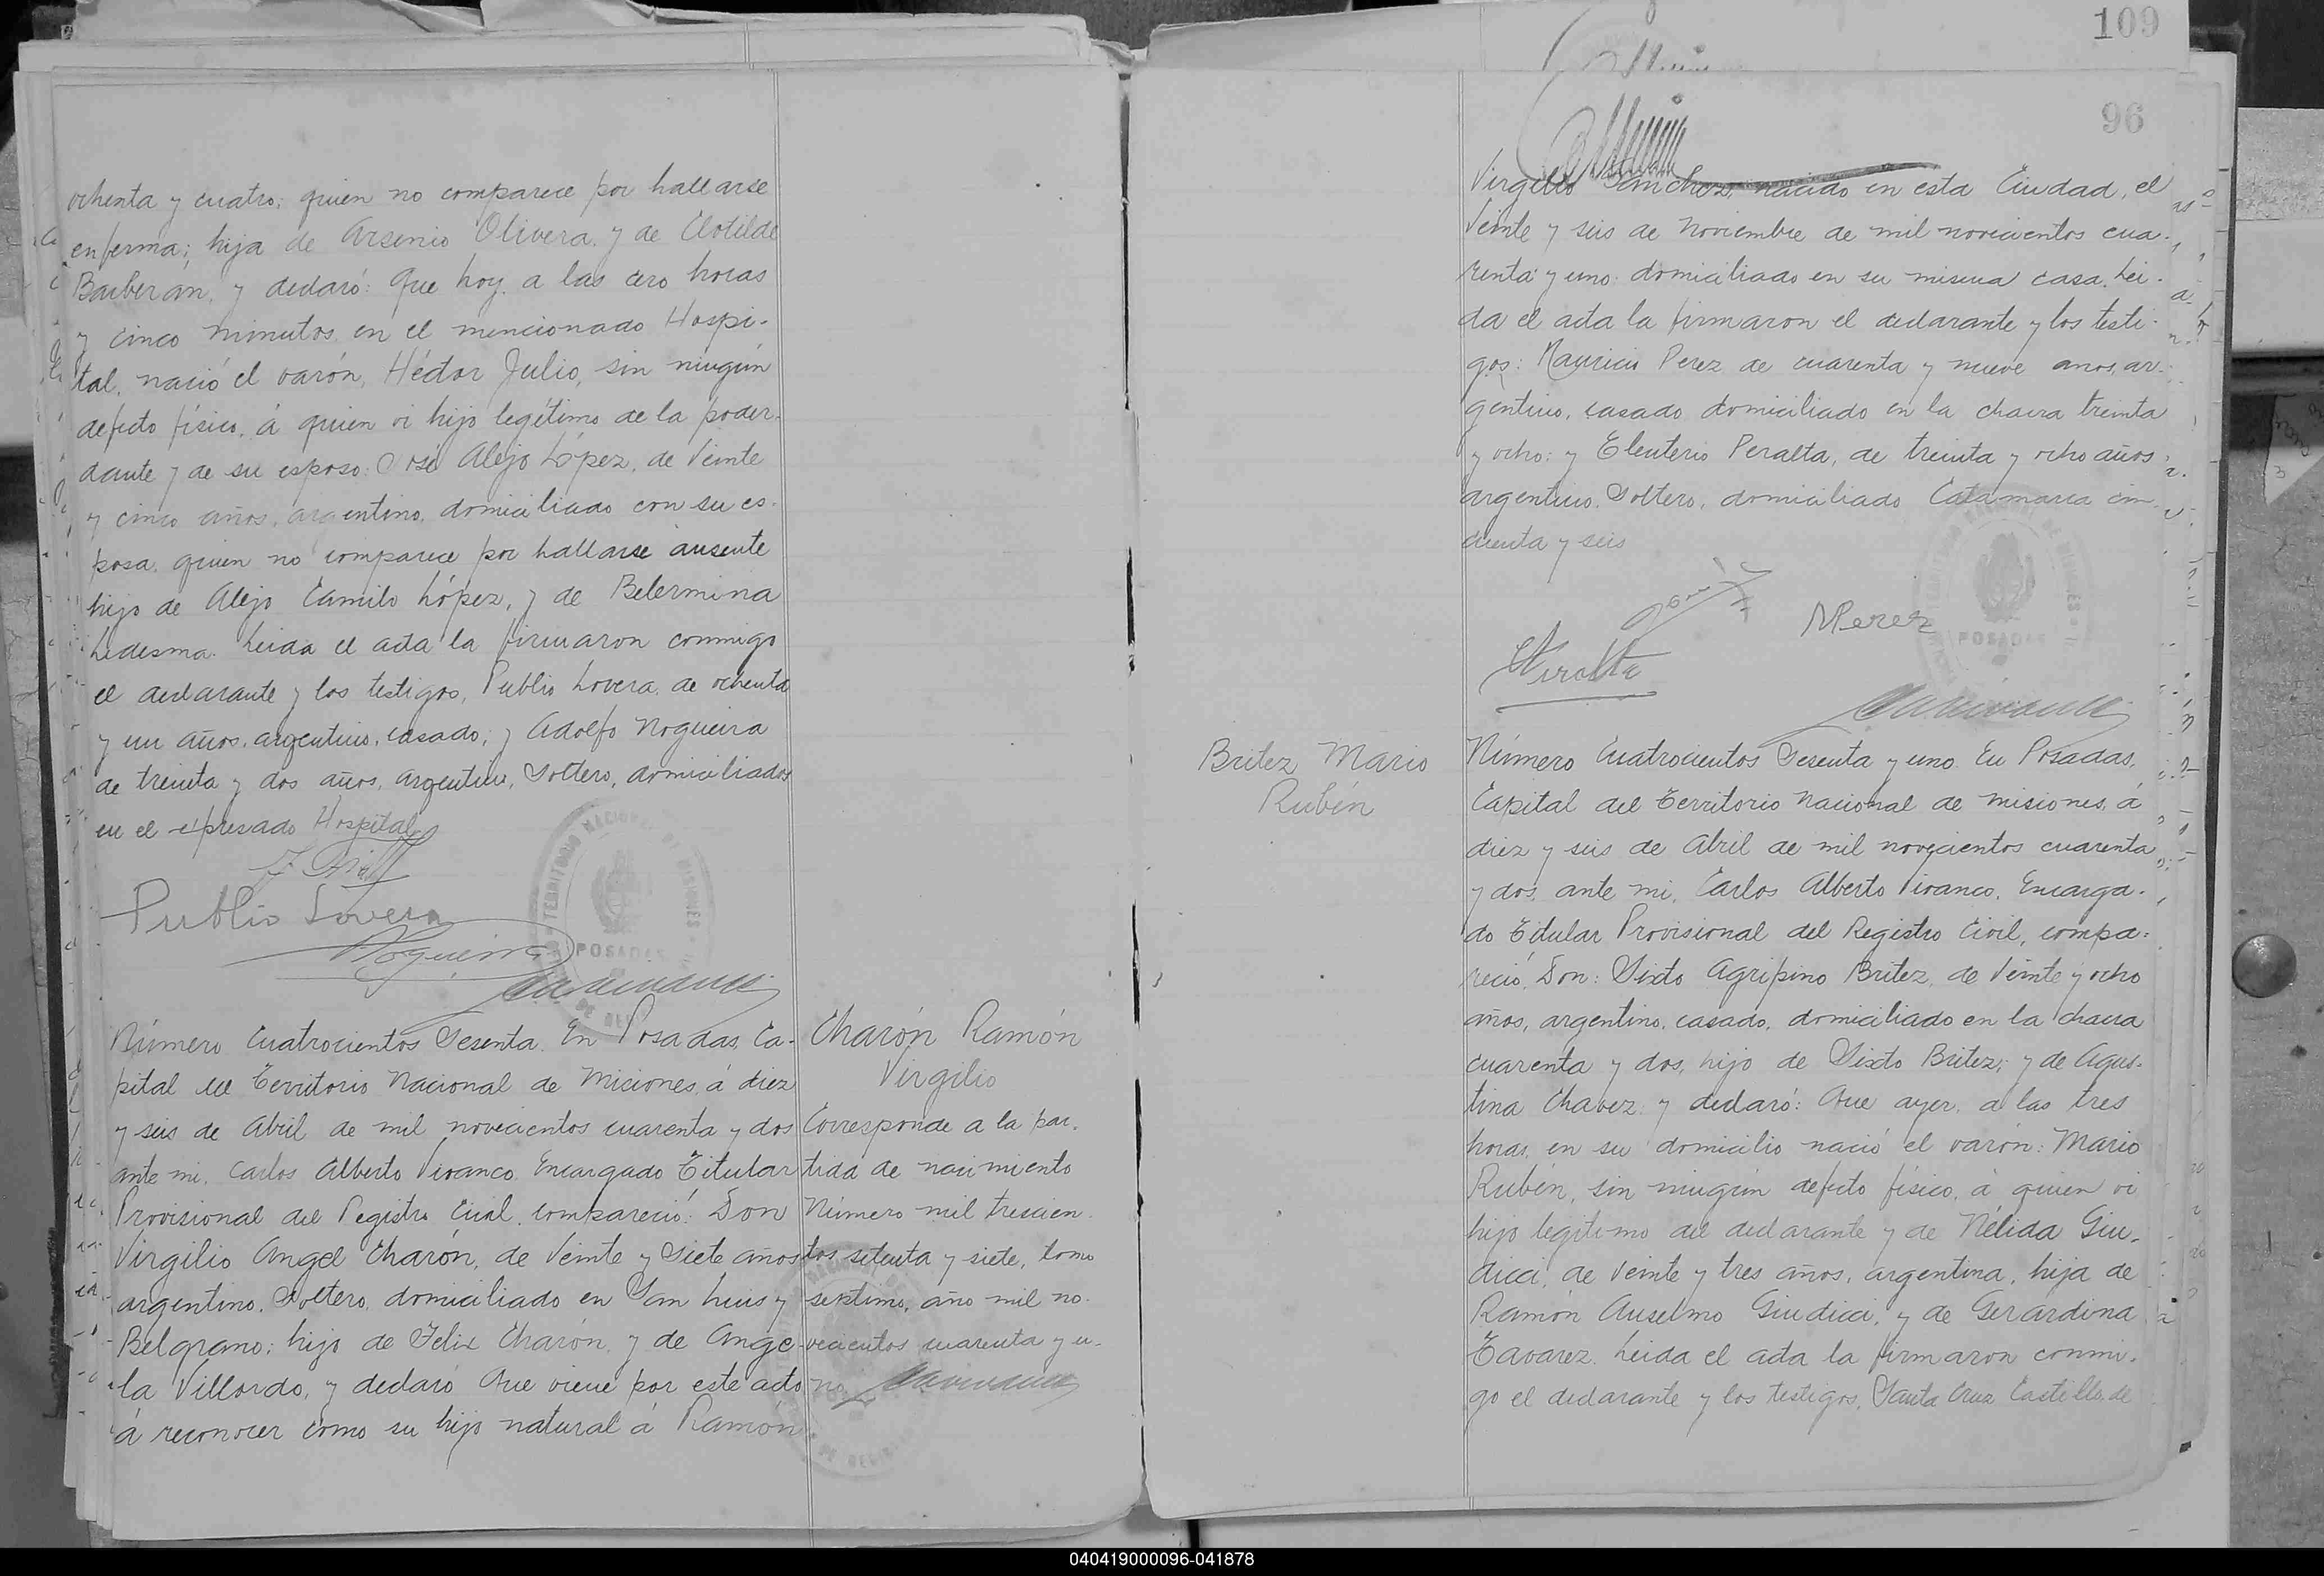 ochenta y cuatro; quien no comparece por hallarse
enferma; hija de Arsenio Olivera, y de Clotilde
Barberán, y declaró: Que hoy, a las cero horas
y cinco minutos, en el mencionado Hospi-
tal, nació el varón, Héctor Julio, sin ningún
defecto físico, á quien vi hijo legítimo de la poder-
dante y de su esposo: José Alejo López, de veinte
y cinco años, argentino, domiciliado con su es-
posa, quien no comparece por hallarse ausente
hijo de Alejo Camilo López, y de Belermina
Ledesma. Leida el acta la firmaron conmigo
el declarante y los testigos, Publio Lovera, de ochenta
y un años, argentino, casado; y Adolfo Nogueira
de treinta y dos años, argentino, soltero, domiciliados
en el expresado Hospital
Publio Lovera
Nogueira
TERRITORIO NACIONAL DE MISIONES
POSADAS
Número Cuatrocientos Sesenta. En Posadas, Ca-
pital del Territorio Nacional de Misiones, á diez
y seis de Abril de mil novecientos cuarenta y dos
ante mi, Carlos Alberto Vivanco, Encargado Titular
Provisional del Registro Civil, compareció: Don
Virgilio Angel Charón, de Veinte y Siete años
argentino, Soltero, domiciliado en San Luis y
Belgrano; hijo de Felix Charón, y de Ange-
la Villordo, y declaró Que viene por este acto
á reconocer como su hijo natural á Ramón
Charón Ramón
Virgilio
Corresponde a la par-
tida de nacimiento
Número mil trescien-
tos setenta y siete, tomo
septimo, año mil no-
vecientos cuarenta y u-
no
109
96
Virgilio Sanchez, nacido en esta Ciudad, el
Veinte y seis de Noviembre de mil novecientos cua-
renta y uno, domiciliado en su misma casa. Lei-
da el acta la firmaron el declarante y los testi-
gos: Mauricio Perez, de cuarenta y nueve años, ar-
gentino, casado domiciliado en la chacra treinta
y ocho; y Eleuterio Peralta, de treinta y ocho años
argentino, Soltero, domiciliado Catamarca cin-
cuenta y seis
MPerez
POSADAS
Britez Mario
Rubén
Número Cuatrocientos Sesenta y uno. En Posadas,
Capital del Territorio Nacional de Misiones, á
diez y seis de Abril de mil novecientos cuarenta
y dos, ante mi, Carlos Alberto Vivanco, Encarga-
do Titular Provisional del Registro Civil, compa-
reció, Don: Sixto Agripino Britez, de Veinte y ocho
años, argentino, casado, domiciliado en la chacra
cuarenta y dos, hijo de Sixto Britez; y de Agus-
tina Chavez; y declaró: Que ayer, a las tres
horas, en su domicilio nació el varón: Mario
Rubén, sin ningún defecto físico, á quien vi
hijo legítimo del declarante y de Nélida Giu-
dicci, de Veinte y tres años, argentina, hija de
Ramón Anselmo Giudicci, y de Gerardina
Tavarez. Leida el acta la firmaron conmi-
go el declarante y los testigos, Santa Cruz Castillo, de
040419000096-041878